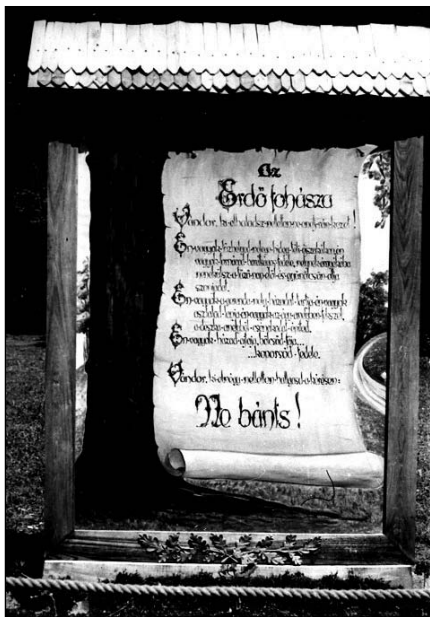 Az
Erdő fohásza
Vándor, ki elhaladsz mellettem ne emelj rám kezet !
Én vagyok tűzhelyed melege hideg téli éjszakákon
vagyok tornácod barátságos fedele, melynek árnyékába
menekülsz a tűző nap elől és gyümölcsöm oltja
szomjadat.
Én vagyok a gerenda mely házadat tartja én vagyok
asztalod lapja én vagyok az ágy amelyben fekszel,
a deszka amelyből csónakodat építed.
Én vagyok házad ajtaja, bölcsőd fája...
...koporsód fedele.
Vándor, ki elmégy mellettem hallgasd a kérésem:
Ne bánts !